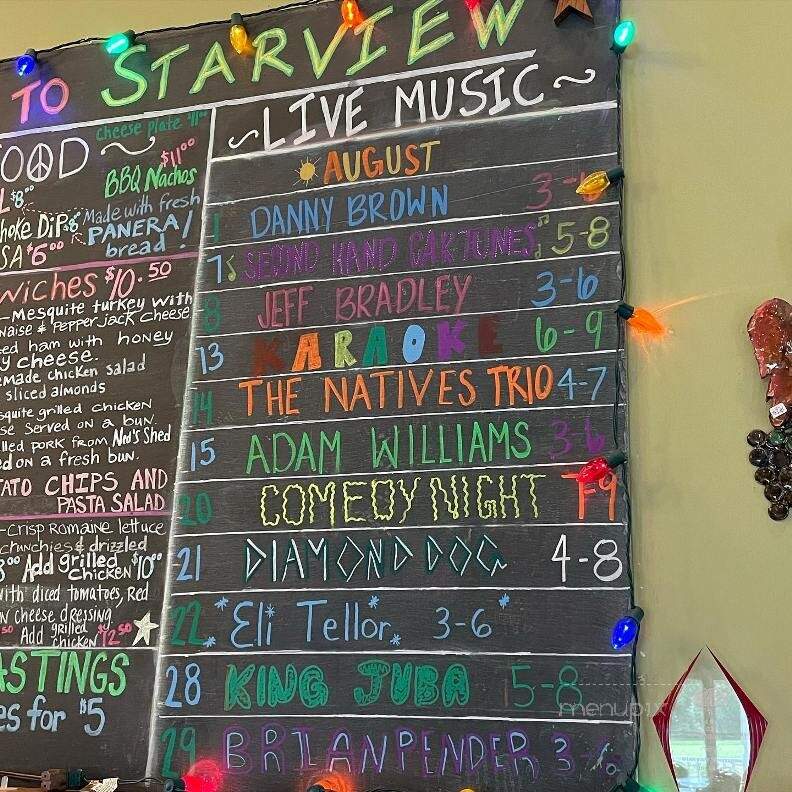 TO STARVIEW
cheese plate
OOD
$11⁰⁰
BBQ Nachos
L $8⁰⁰
hoke Dip $8
Made with fresh
PANERA!
bread!
SA $6⁰⁰
wiches $10.50
-Mesquite turkey with
naise & Pepperjack cheese
ed ham with honey
y cheese.
emade chicken salad
sliced almonds
squite grilled chicken
se served on a bun.
lled pork from Ned's Shed
ed on a fresh bun.
TATO CHIPS AND
PASTA SALAD
-Crisp Romaine lettuce
crunchies & drizzled
8⁰⁰ Add grilled chicken $10⁰⁰
with diced tomatoes, Red
n cheese dressing
50 Add grilled chicken $12⁵⁰
ASTINGS
es for $5
~LIVE MUSIC~
AUGUST
1 DANNY BROWN 3-6
7 SECOND HAND CARTUNES 5-8
8 JEFF BRADLEY 3-6
13 KARAOKE 6-9
14 THE NATIVES TRIO 4-7
15 ADAM WILLIAMS 3-6
20 COMEDY NIGHT 7-9
21 DIAMOND DOG 4-8
22 *Eli Tellor* 3-6
28 KING JUBA 5-8
29 BRIAN PENDER 3-6
menupix